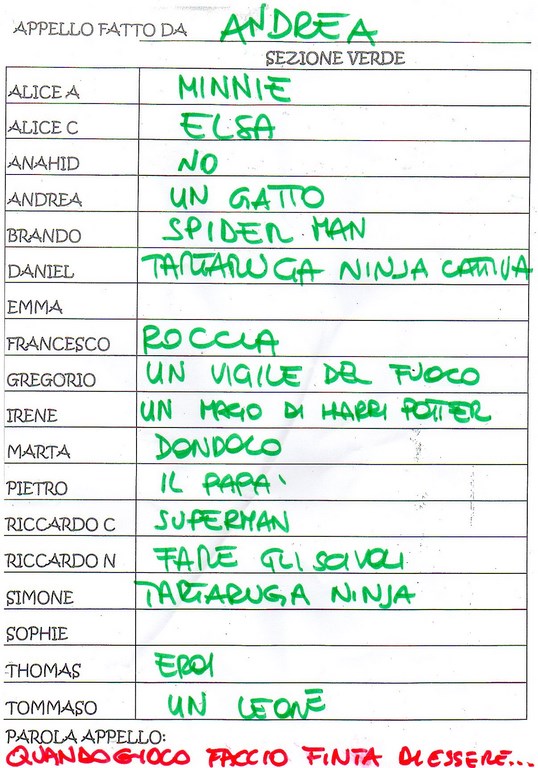 APPELLO FATTO DA ANDREA
SEZIONE VERDE
ALICE A MINNIE
ALICE C ELSA
ANAHID NO
ANDREA UN GATTO
BRANDO SPIDER MAN
DANIEL TARTARUGA NINJA CATTIVA
EMMA
FRANCESCO ROCCIA
GREGORIO UN VIGILE DEL FUOCO
IRENE UN MAGO DI HARRI POTTER
MARTA DONDOLO
PIETRO IL PAPA'
RICCARDO C SUPERMAN
RICCARDO N FARE GLI SCIVOLI
SIMONE TARTARUGA NINJA
SOPHIE
THOMAS EROI
TOMMASO UN LEONE
PAROLA APPELLO:
QUANDO GIOCO FACCIO FINTA DI ESSERE...